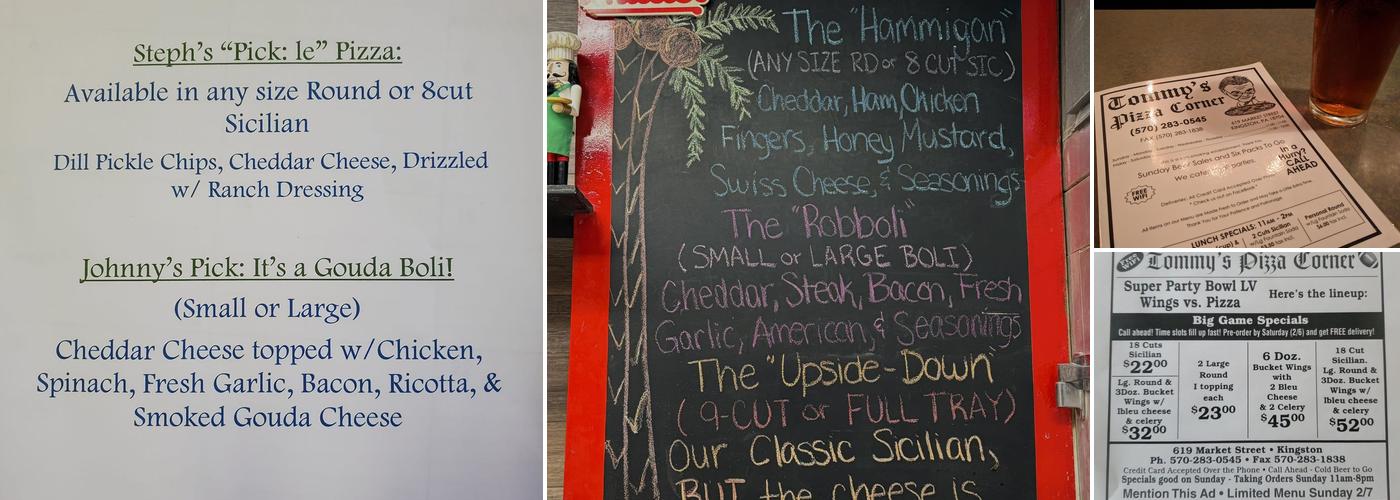 Steph's "Pick: le" Pizza:
Available in any size Round or 8cut
Sicilian
Dill Pickle Chips, Cheddar Cheese, Drizzled
w/ Ranch Dressing
Johnny's Pick: It's a Gouda Boli!
(Small or Large)
Cheddar Cheese topped w/Chicken,
Spinach, Fresh Garlic, Bacon, Ricotta, &
Smoked Gouda Cheese
The "Hammigan"
(ANY SIZE RD or 8 CUT SIC)
Cheddar, Ham, Chicken
Fingers, Honey Mustard,
Swiss Cheese, & Seasonings
The "Robboli"
(SMALL or LARGE BOLI)
Cheddar, Steak, Bacon, Fresh
Garlic, American, & Seasonings
The "Upside-Down"
(9-CUT or FULL TRAY)
Our Classic Sicilian,
BUT the cheese is
Tommy's
Pizza Corner
(570) 283-0545
FAX (570) 283-1838
619 MARKET STREET
KINGSTON, PA 18704
Sunday Beer Sales and Six Packs To Go
We cater parties.
In a
Hurry?
CALL
AHEAD
FREE
WIFI
All Credit Card Accepted Over
Deliveries:
* Check us out on FaceBook *
All Items on our Menu are Made Fresh to Order and May Take a Little Extra Time.
Thank You for Your Patience and Patronage
LUNCH SPECIALS: 11AM - 2PM
2 Cuts Sicilian
w/Lg Fountain Soda
Personal Round
w/Lg Fountain Soda
$6.00 tax incl.
Tommy's Pizza Corner
Super Party Bowl LV
Wings vs. Pizza
Here's the lineup:
Big Game Specials
Call ahead! Time slots fill up fast! Pre-order by Saturday (2/6) and get FREE delivery!
18 Cuts
Sicilian
$22.00
Lg. Round &
3Doz. Bucket
Wings w/
1bleu cheese
& celery
$32.00
2 Large
Round
1 topping
each
$23.00
6 Doz.
Bucket Wings
with
2 Bleu
Cheese
& 2 Celery
$45.00
18 Cut
Sicilian.
Lg. Round &
3Doz. Bucket
Wings w/
1bleu cheese
& celery
$52.00
619 Market Street • Kingston
Ph. 570-283-0545 • Fax 570-283-1838
Credit Card Accepted Over the Phone • Call Ahead - Cold Beer to Go
Specials good on Sunday - Taking Orders Sunday 11am-8pm
Mention This Ad • Limited Menu Sunday 2/7